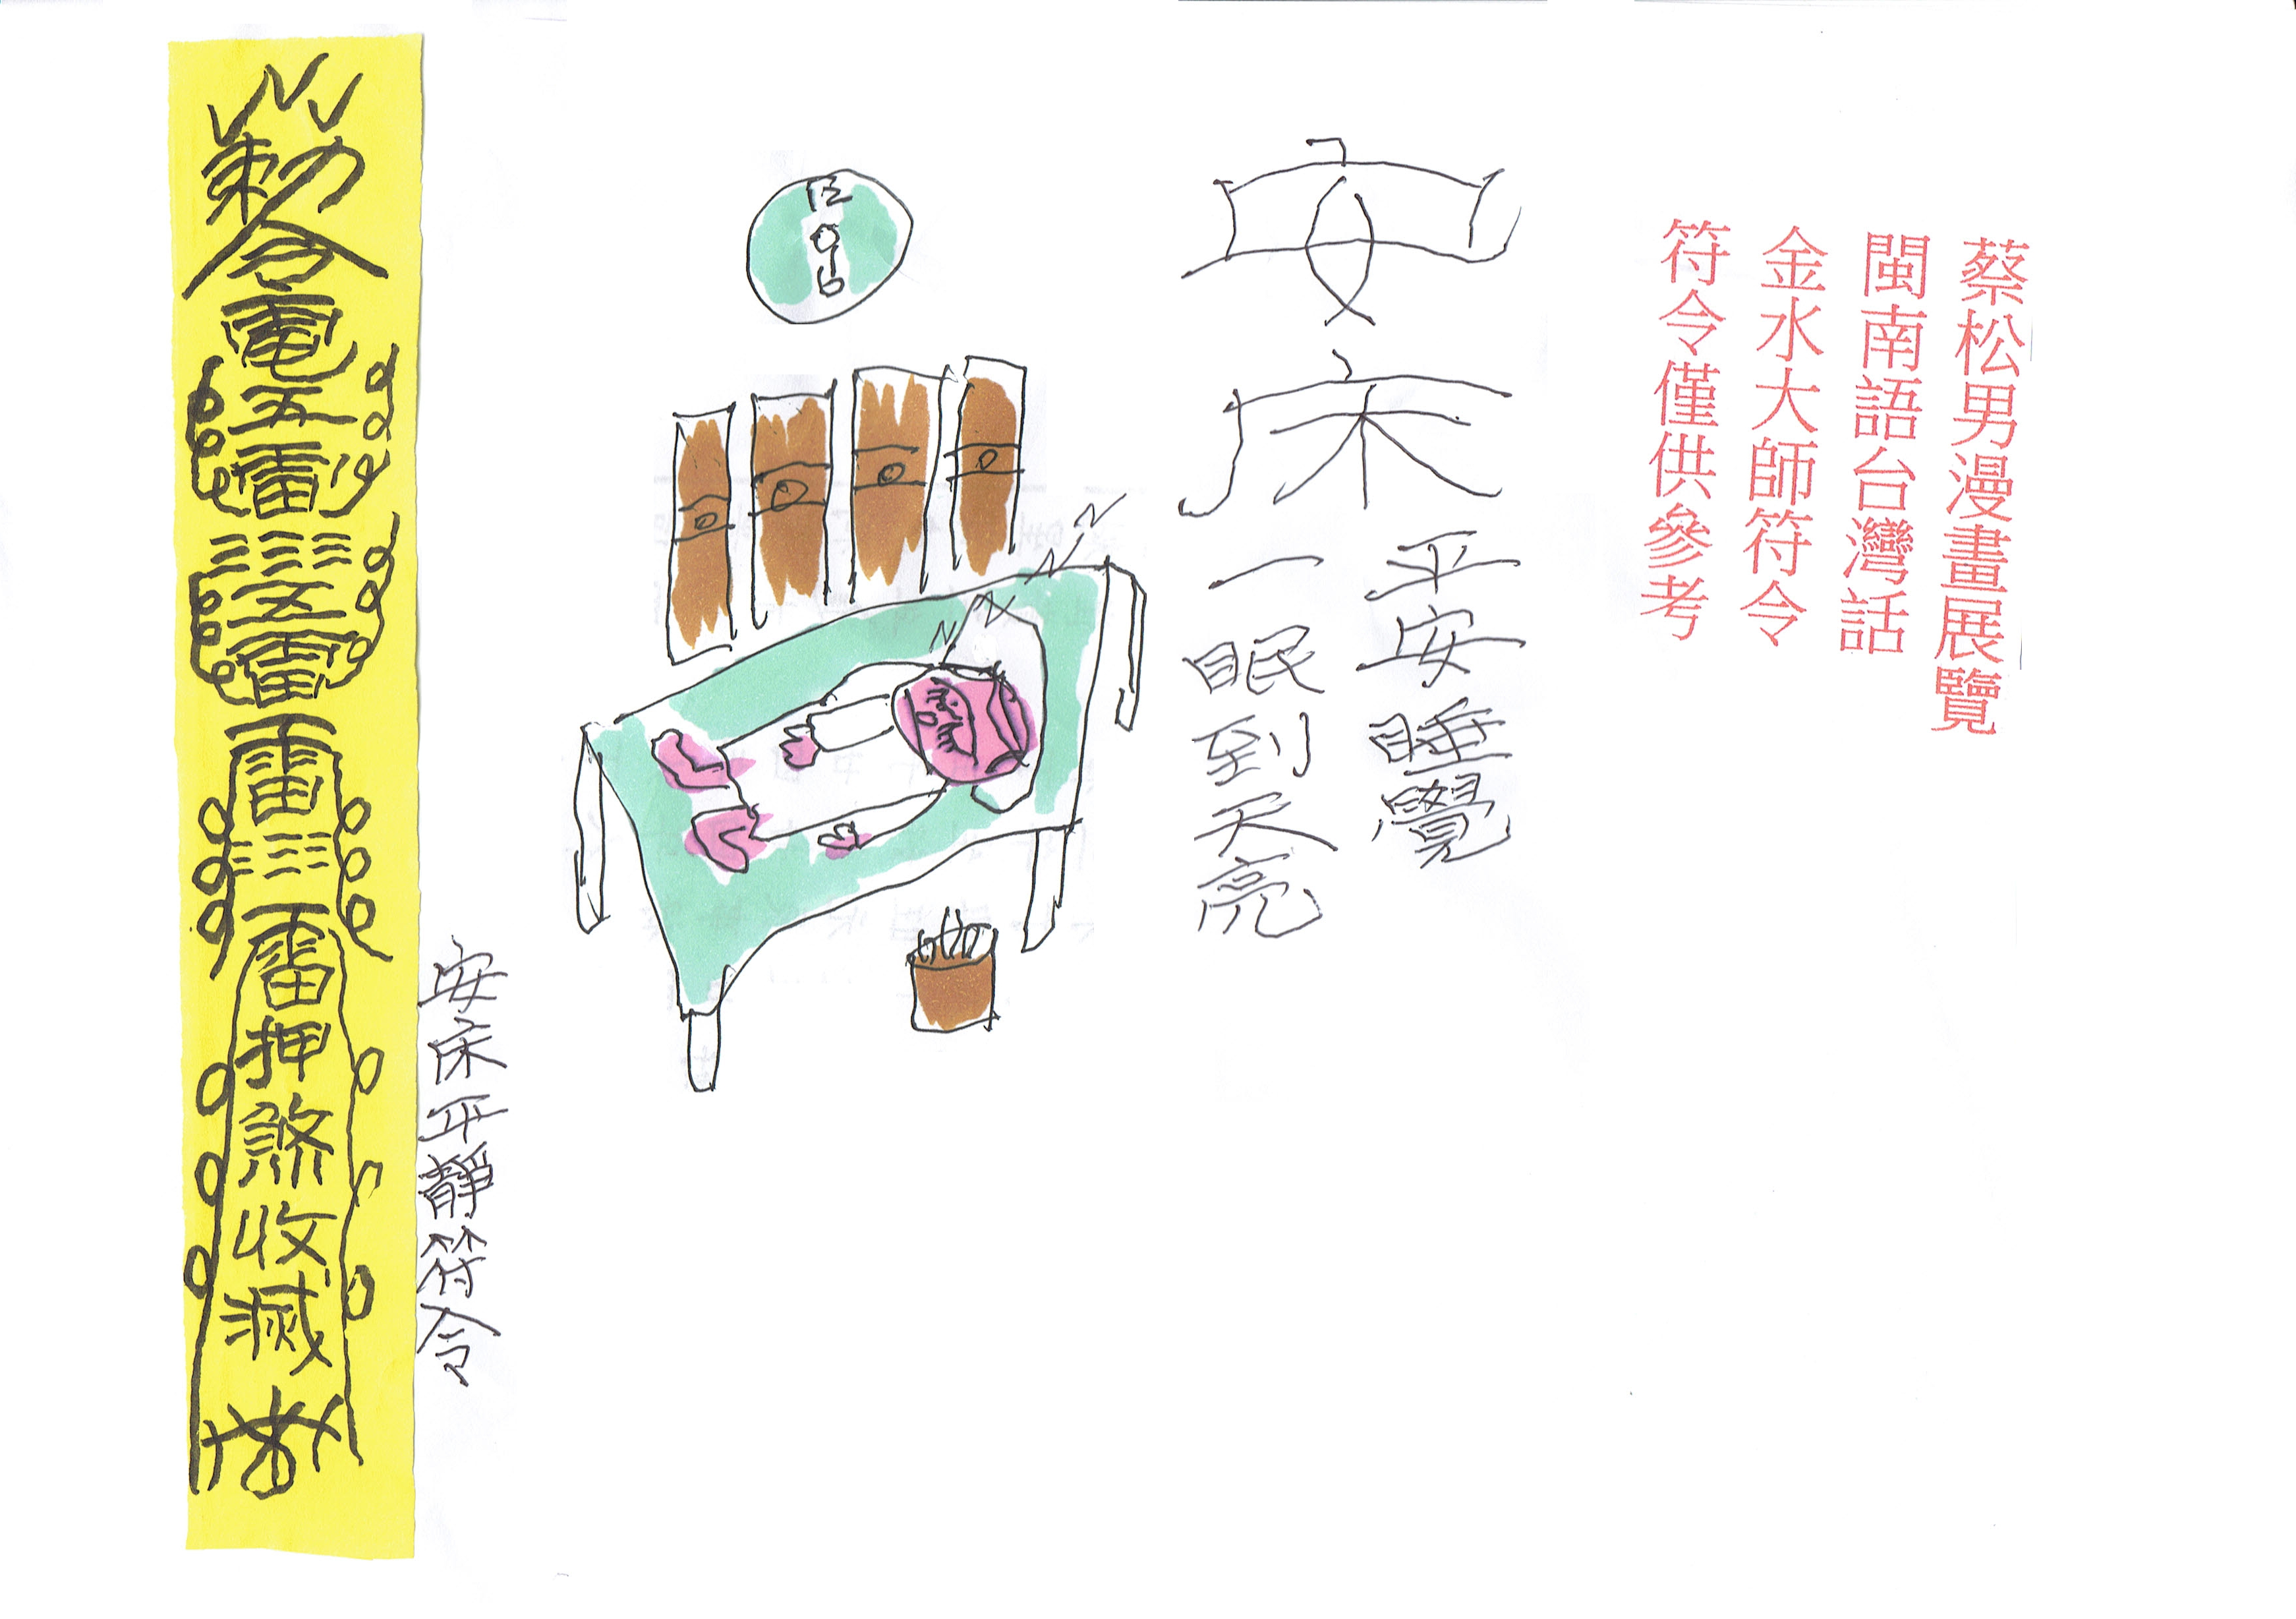 蔡松男漫畫展覽
閩南語台灣話
金水大師符令
符令僅供參考
安床
平安睡覺
一眠到天亮
安床平靜符令
勅令
五雷
雷
雷
押煞收滅